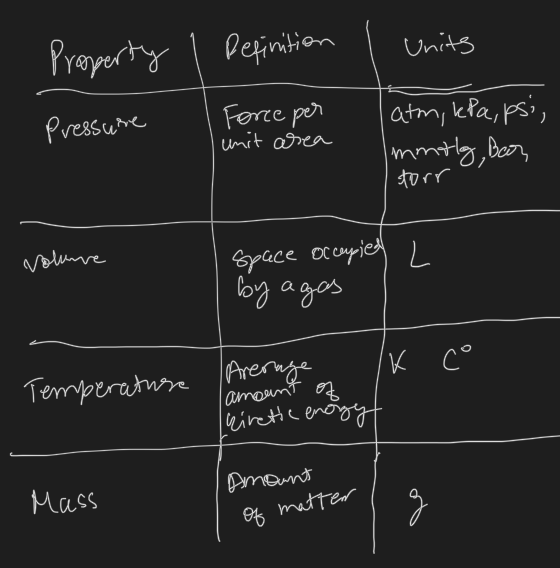 Property Definition Units
Pressure Force per unit area atm, kPa, psi, mmHg, Bar, torr
Volume Space occupied by a gas L
Temperature Average amount of kinetic energy K C°
Mass Amount of matter g